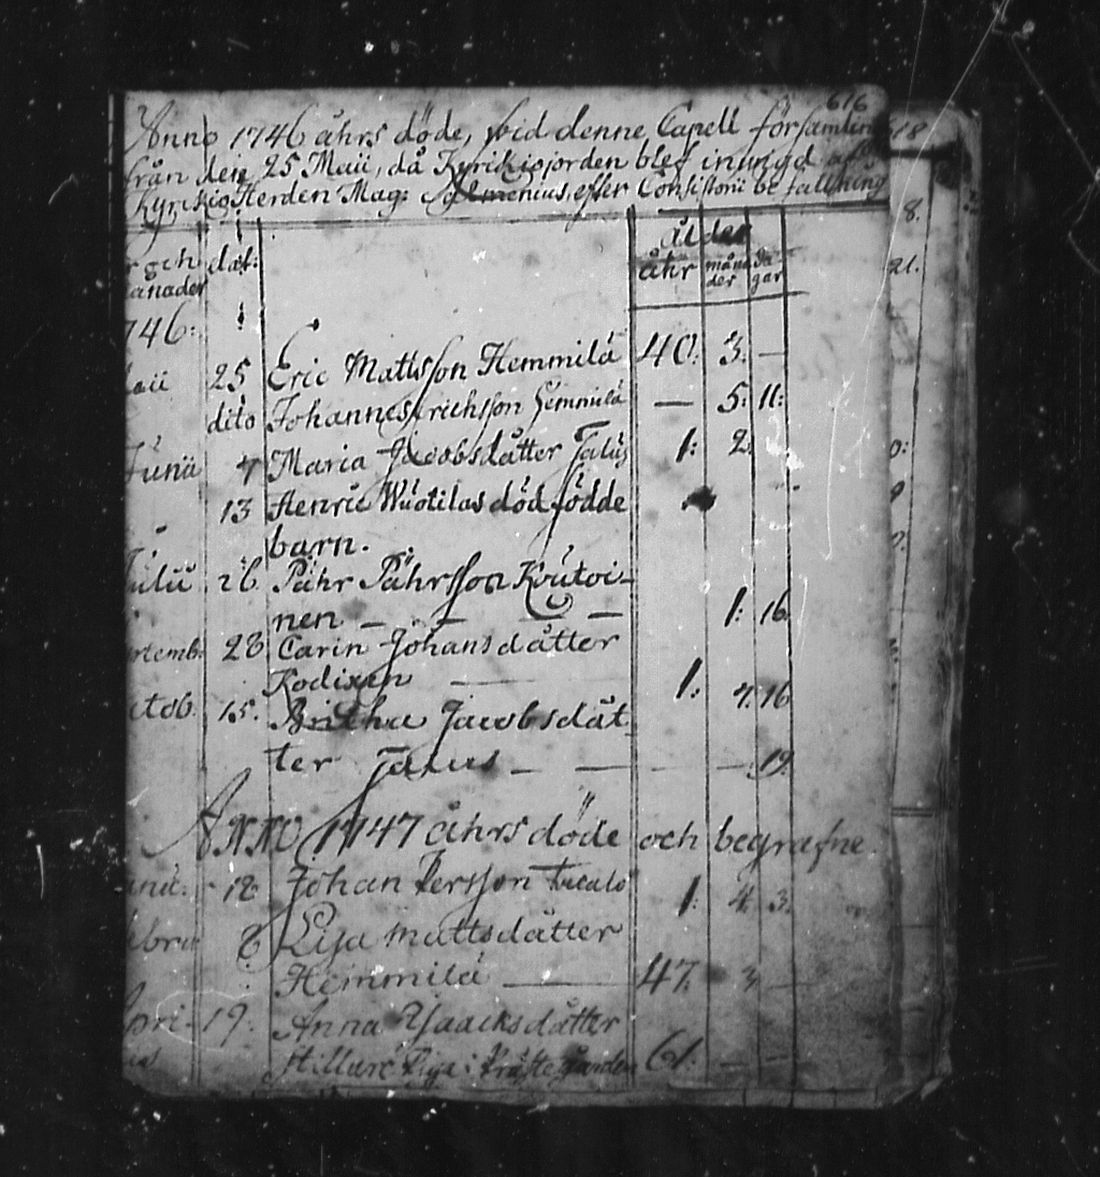 616
Anno 1746 åhrs döde, wid denne Capell församlin
från den 25 Maii, då Kyrkiojorden blef inwigd af
Kyrkio Herden Mag: efter Consistorii befallning
618
ålder
åhr måna der da gar
och dat:
anader
746:
aii 25 Eric Mattsson Hemmilä 40: 3. —
dito Johannes Erichsson Hemmilä — 5: 11:
Junii 7 Maria Jacobsdåtter Talus 1: 2.
13 Henric Wuotilas dödfödde
barn.
Julii 26 Pähr Pährsson Koutoi-
nen — — — — 1: 16
temb: 28 Carin Johansdåtter
Kodixen — 1: 7. 16
ctob. 15. Britha Jacobsdåt
ter Talus — — — — 19.
ANNO 1747 åhrs döde och begrafne
12 Johan Persson 1: 4. 3.
ebru 8 Lisa Mattsdåtter
Hemmilä — 47. 3 —
pri- 19. Anna Isaacksdåtter
Piga i Prästegården 61. — —
8.
21.